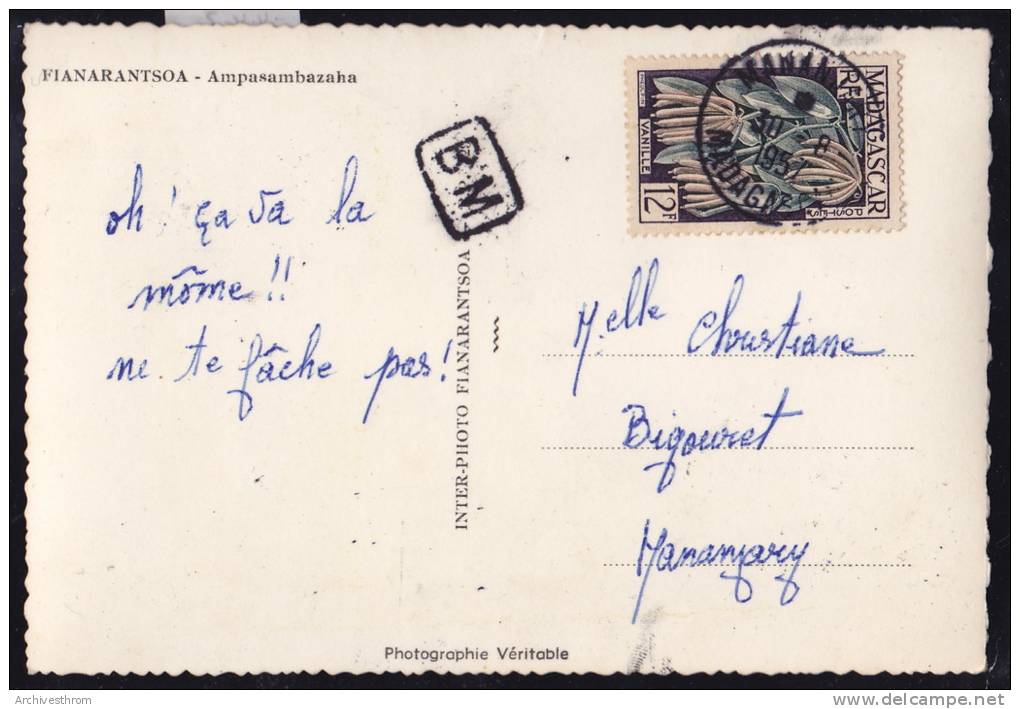 FIANARANTSOA - Ampasambazaha
B.M
MADAGASCAR
RF
POSTES
VANILLE
12F
MANAN
30 8
1957
MADAG
oh! ça va la
môme!!
ne te fâche pas!
INTER-PHOTO FIANARANTSOA
Melle Christiane
Bigouret
Mananjary
Photographie Véritable
Archivesthrom
www.delcampe.net